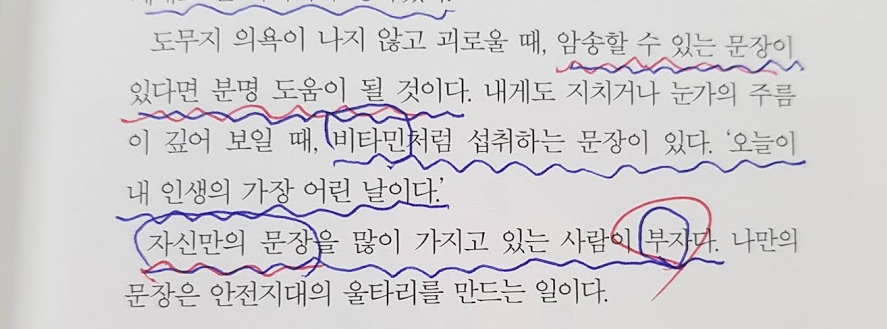 도무지 의욕이 나지 않고 괴로울 때, 암송할 수 있는 문장이
있다면 분명 도움이 될 것이다. 내게도 지치거나 눈가의 주름
이 깊어 보일 때, 비타민처럼 섭취하는 문장이 있다. ‘오늘이
내 인생의 가장 어린 날이다.’
자신만의 문장을 많이 가지고 있는 사람이 부자다. 나만의
문장은 안전지대의 울타리를 만드는 일이다.